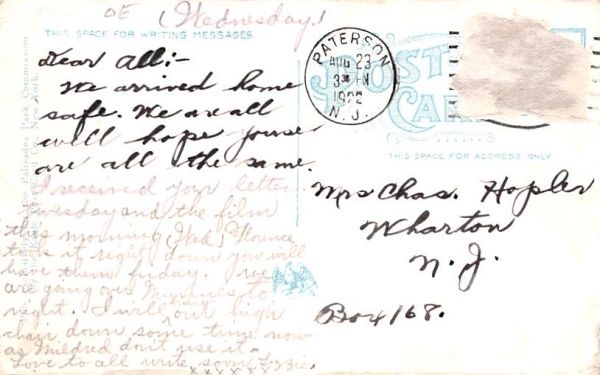 OE (Wednesday.)
THIS SPACE FOR WRITING MESSAGES
Dear All:-
We arrived home
safe. We are all
well hope youse
are all the same.
I received your letter
Tuesday and the film
this morning (Wed) Florence
took it right down you will
have them friday. We
are going over to
night. I will put high
chair down some time now
as Mildred don't use it
Love to all write soon Lizzie.
xxxxxxx
PATERSON
AUG 23
3 30 PM
1922
N.J.
POST CARD
THIS SPACE FOR ADDRESS ONLY
Mrs Chas. Hopler
Wharton
N. J.
Box 168.